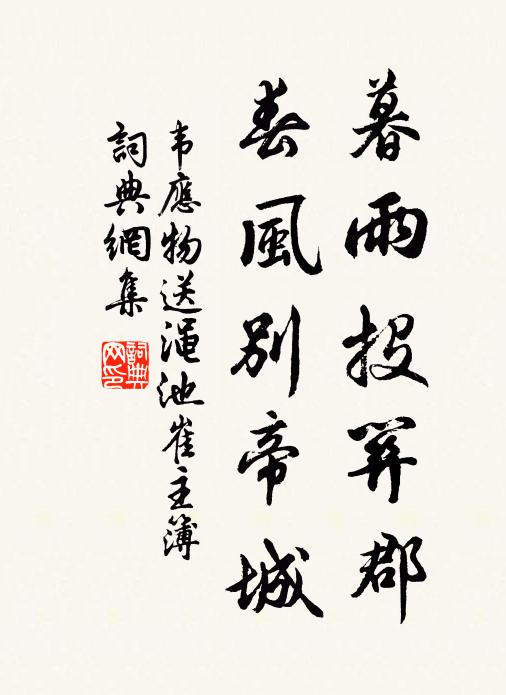 暮雨投關郡
春風別帝城
韦應物送渑池崔主簿
詞典網集
詞典网印